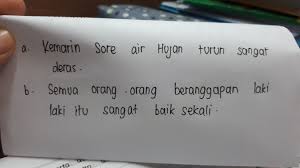 a. Kemarin Sore air Hujan turun sangat
deras.
b. Semua orang-orang beranggapan laki
laki itu sangat baik sekali.